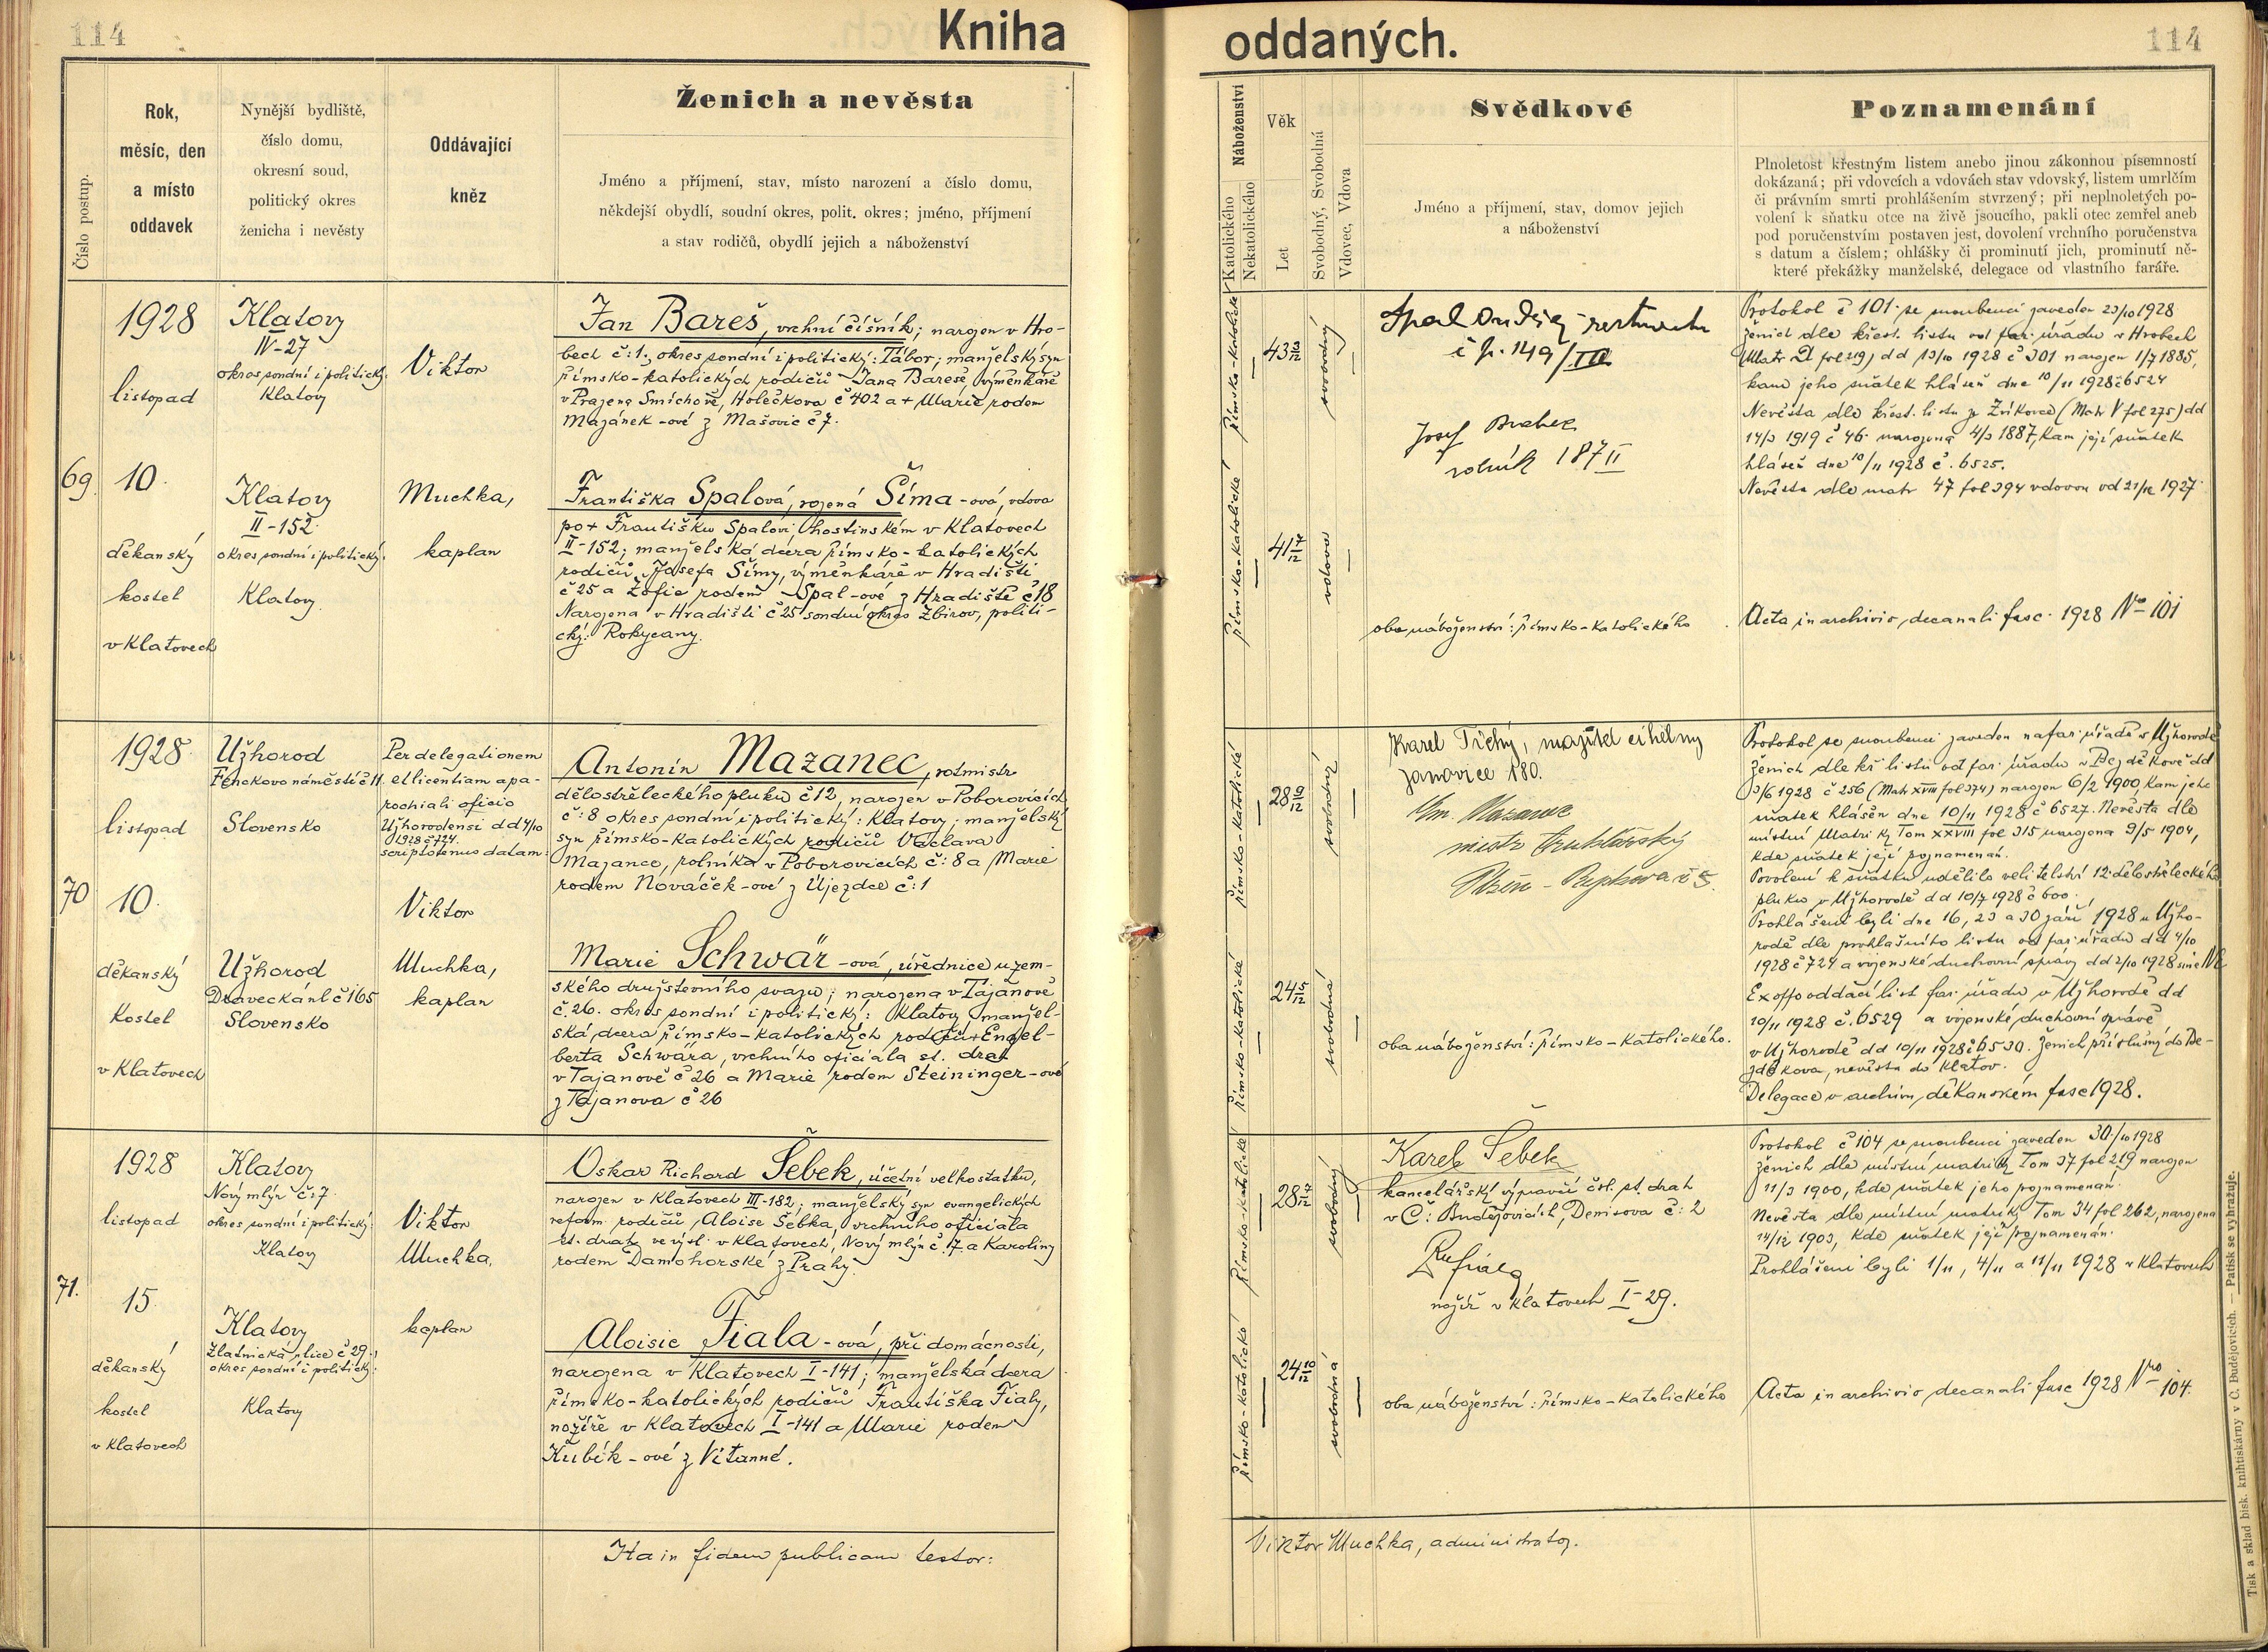 114
Kniha
oddaných.
114
Číslo postup.
Rok,
měsíc, den
a místo
oddavek
Nynější bydliště,
číslo domu,
okresní soud,
politický okres
ženicha i nevěsty
Oddávající
kněz
Ženich a nevěsta
Jméno a příjmení, stav, místo narození a číslo domu,
někdejší obydlí, soudní okres, polit. okres; jméno, příjmení
a stav rodičů, obydlí jejich a náboženství
Náboženství
Katolického
Nekatolického
Věk
Let
Svobodný, Svobodná
Vdovec, Vdova
Svědkové
Jméno a příjmení, stav, domov jejich
a náboženství
Poznamenání
Plnoletost křestným listem anebo jinou zákonnou písemností
dokázaná; při vdovcích a vdovách stav vdovský, listem umrlčím
či právním smrti prohlášením stvrzený; při neplnoletých po-
volení k sňatku otce na živě jsoucího, pakli otec zemřel aneb
pod poručenstvím postaven jest, dovolení vrchního poručenstva
s datum a číslem; ohlášky či prominutí jich, prominutí ně-
které překážky manželské, delegace od vlastního faráře.
69.
1928
listopad
10.
děkanský
kostel
v Klatovech
Klatovy
IV-27
okres soudní i politický:
Klatovy
Klatovy
II-152.
okres soudní i politický:
Klatovy.
Viktor
Muchka,
kaplan
Jan Bareš, vrchní číšník; narozen v Hro-
bech č: 1., okres soudní i politický: Tábor; manželský syn
římsko-katolických rodičů Jana Bareše, výměnkáře
v Praze na Smíchově, Holečkova č 402 a + Marie rodem
Mazánek-ové z Mašovic č 7.
Františka Spalová, rozená Šíma-ová, vdova
po + Františku Spalovi, hostinském v Klatovech
II-152; manželská dcera římsko-katolických
rodičů Josefa Šímy, výměnkáře v Hradišti
č 25 a Žofie rodem Spal-ové z Hradiště č 18
Narozena v Hradišti č 25 soudní okres Zbirov, politi-
cký: Rokycany.
římsko-katolické
43 10/12
svobodný
římsko-katolické
41 7/12
vdova
Spal Ondřej
č p. 149/III
Josef
rolník 187 II
oba náboženství: římsko-katolického
Protokol č 101 se snoubenci zaveden 23/10 1928
Ženich dle křest. listu od far. úřadu v Hrobech
fol 219) dd 13/10 1928 č 301 narozen 1/7 1885,
kam jeho sňatek hlášen dne 10/11 1928 č 6524
Nevěsta dle křest. listu z Zvíkovce (Matr V fol 275) dd
14/3 1919 č 46 narozena 4/3 1887, kam její sňatek
hlášen dne 10/11 1928 č. 6525.
Nevěsta dle matr 47 fol 394 vdovou od 21/12 1927.
Acta in archivio decanali fasc. 1928 No 101
70
1928.
listopad
10.
děkanský
kostel
v Klatovech
Užhorod
Fenckovo náměstí č 11.
Slovensko
Užhorod
Dravecká ul č 165
Slovensko
Per delegationem
et licentiam a pa-
rochiali oficio
Užhorodensi dd 4/10
1928 č 724.
scriptotenus datam:
Viktor
Muchka,
kaplan
Antonín Mazanec, rotmistr
dělostřeleckého pluku č 12, narozen v Poborovicích
č: 8 okres soudní i politický: Klatovy; manželský
syn římsko-katolických rodičů Václava
Mazance, rolníka v Poborovicích č: 8 a Marie
rodem Nováček-ové z Újezdce č: 1
Marie Schwär-ová, úřednice u zem-
ského družstevního svazu; narozena v Tajanově
č. 26. okres soudní i politický: Klatovy manžel-
ská dcera římsko-katolických rodičů + Engel-
berta Schwära, vrchního oficiála st. drah
v Tajanově č 26 a Marie rodem Steininger-ové
z Tajanova č 26
římsko-katolické
28 9/12
svobodný
římsko-katolické
24 5/12
svobodná
Karel Tichý, majitel cihelny
Janovice 180.
Mazanec
mistr truhlářský
Plzeň
oba náboženství: římsko-katolického.
Protokol se snoubenci zaveden na far. úřadě v Užhorodě
Ženich dle kř listu od far. úřadu v Bezděkově dd
3/6 1928 č 256 (Matr XVIII fol 374) narozen 6/2 1900, kam jeho
sňatek hlášen dne 10/11 1928 č 6527. Nevěsta dle
místní Matriky Tom XXVIII fol 315 narozena 9/5 1904,
kde sňatek její poznamenán.
Povolení k sňatku udělilo velitelství 12. dělostřeleckého
pluku v Užhorodě dd 10/7 1928 č 600.
Prohlášeni byli dne 16, 23 a 30 září 1928 u Užho-
rodě dle prohlašního listu od far. úřadu dd 4/10
1928 č 724 a vojenské duchovní správy dd 2/10 1928 sine No
Ex offo oddací list far. úřadu v Užhorodě dd
10/11 1928 č. 6529 a vojenské duchovní správě
v Užhorodě dd 10/11 1928 č 6530. Ženich příslušný do Be-
zděkova, nevěsta do Klatov.
Delegace v archivu děkanském fasc 1928.
71.
1928
listopad
15.
děkanský
kostel
v Klatovech
Klatovy
Nový mlýn č: 7.
okres soudní i politický:
Klatovy
Klatovy
Zlatnická ulice č 29.,
okres soudní i politický:
Klatovy
Viktor
Muchka,
kaplan
Oskar Richard Šebek, účetní velkostatku,
narozen v Klatovech III-182; manželský syn evangelických
reform. rodičů Aloise Šebka, vrchního oficiála
st. drah ve výsl. v Klatovech, Nový mlýn č. 7. a Karoliny
rodem Damohorské z Prahy.
Aloisie Fiala-ová, při domácnosti,
narozena v Klatovech I-141; manželská dcera
římsko-katolických rodičů Františka Fialy,
nožíře v Klatovech I-141 a Marie rodem
Kubík-ové z Vítanné.
římsko-katolické
28
svobodný
římsko-katolické
24 10/12
svobodná
Karel Šebek
kancelářský výpravčí čsl. st. drah
v Č: Budějovicích, Denisova č: 2
Fiala
nožíř v Klatovech I-29.
oba náboženství: římsko-katolického
Protokol č 104 se snoubenci zaveden 30./10 1928
Ženich dle místní matriky Tom 37 fol 219 narozen
11/3 1900, kde sňatek jeho poznamenán.
Nevěsta dle místní matriky Tom 34 fol 262, narozena
14/12 1903, kde sňatek její poznamenán.
Prohlášeni byli 1/11, 4/11 a 11/11 1928 v Klatovech
Acta in archivio decanali fasc 1928 Nro 104.
Ita in fidem publicam testor:
Viktor Muchka, administrator.
Tisk a sklad bisk. knihtiskárny v Č. Budějovicích. — Patisk se vyhražuje.